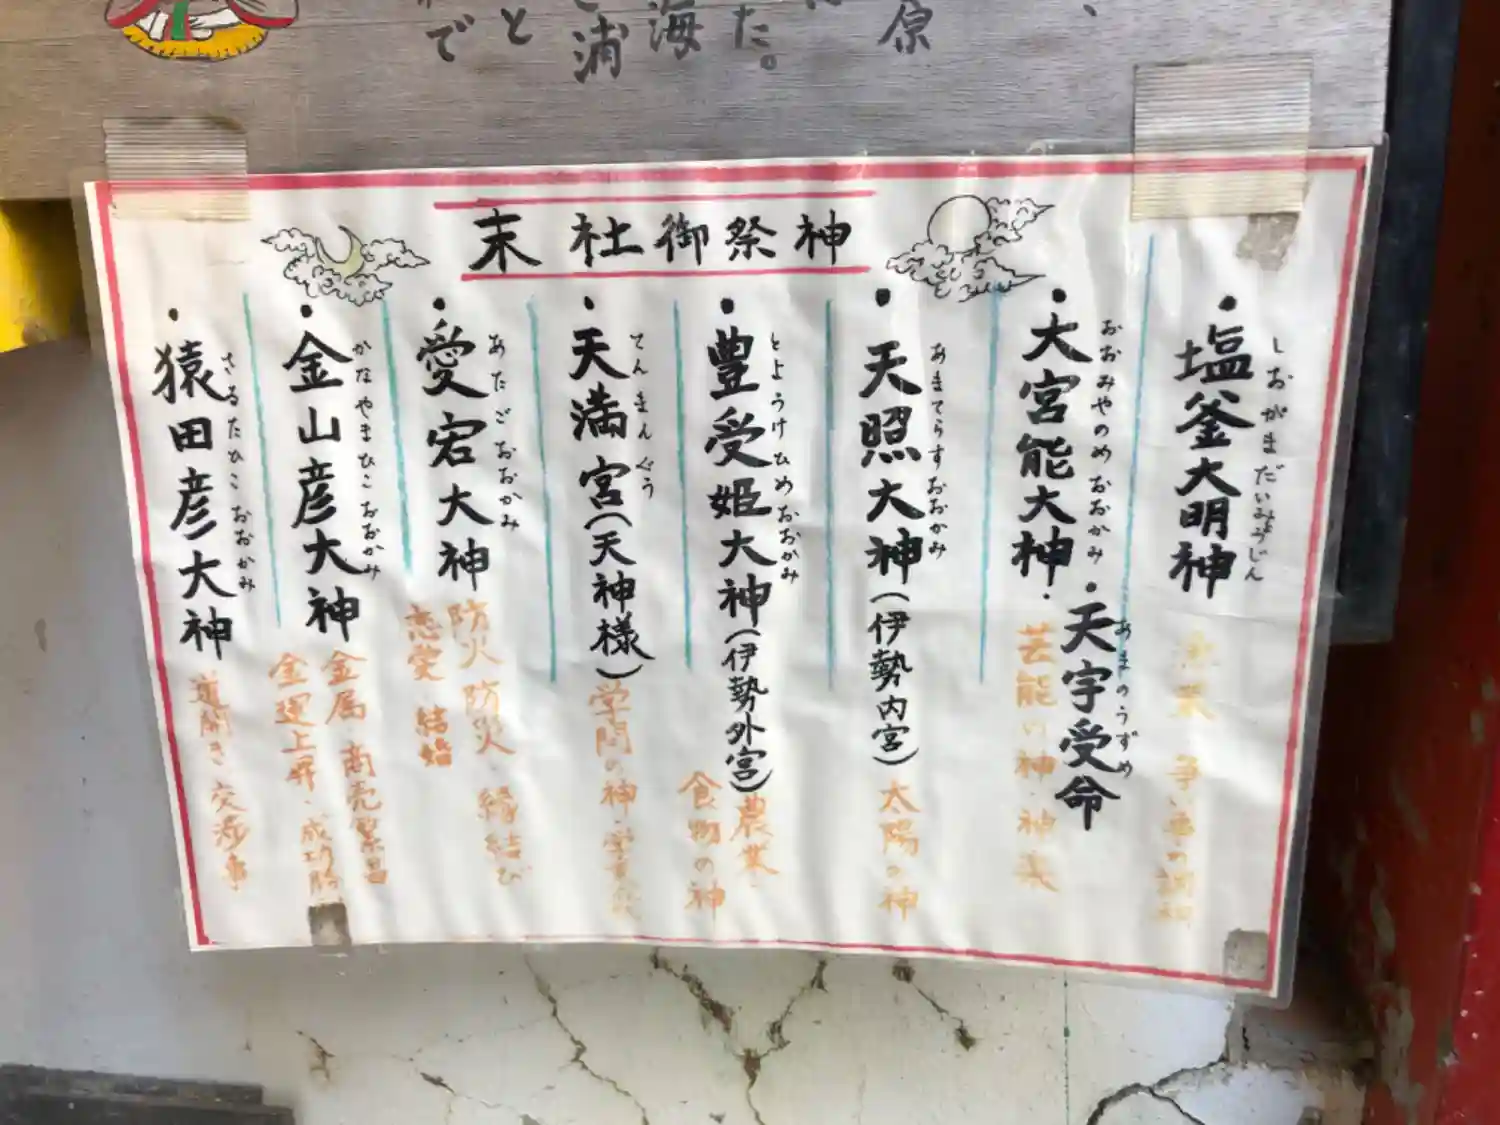 原
た。
海
浦
と
で
末社御祭神
・塩釜大明神
しおがまだいみょうじん
争い事の調和
・大宮能大神
おおみやのめおおかみ
・天宇受命
あまのうずめ
芸能の神・神楽
・天照大神(伊勢内宮)
あまてらすおおかみ
太陽の神
・豊受姫大神(伊勢外宮)
とようけひめおおかみ
農業・
食物の神
・天満宮(天神様)
てんまんぐう
学問の神
・愛宕大神
あたごおおかみ
防火 防災・縁結び
恋愛 結婚
・金山彦大神
かなやまひこおおかみ
金属・商売繁昌
金運上昇・成功勝
・猿田彦大神
さるたひこおおかみ
道開き 交渉事